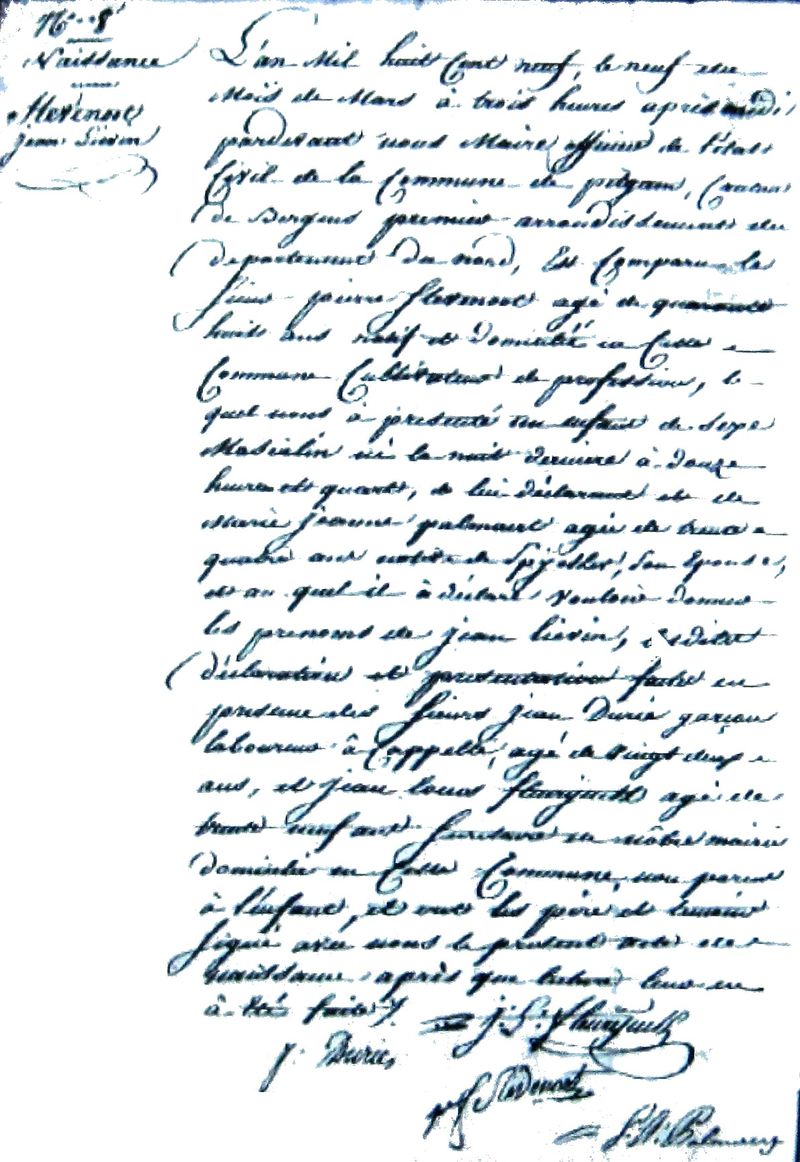 N.º 8
Naissance
Hevenort
jean Lievin
L'an Mil huit Cent neuf, le neuf du
Mois de Mars à trois heures après midi
pardevant nous Maire officier de l'état
Civil de la Commune de pitgam, Canton
de Bergues premier arrondissement du
departement du nord, Est Comparu le
Sieur pierre agé de quarante
huit ans natif et domicilié en Cette
Commune Cultivateur de profession, le
quel nous à presenté un enfant de Sexe
Masculin né la nuit derniere à douze
heures et quart, de lui déclarant et de
Marie jeanne palmaert agée de trente
quatre ans native de Spycker, Son Epouse,
et au quel il à déclaré Vouloir donner
les prenoms de jean lievin, Lesdites
déclaration et presentation faites en
presence des Sieurs jean Durie garçon
laboureur à Cappelle, agé de vingt deux
ans, et jean louis agé de
trente neuf ans Secretaire en nôtre mairie
domicilié en Cette Commune, non parens
à l'enfant, et ont les père et temoins
Signé avec nous le present acte de
naissance après que lecture leur en
à été faite ./.
J. Durie